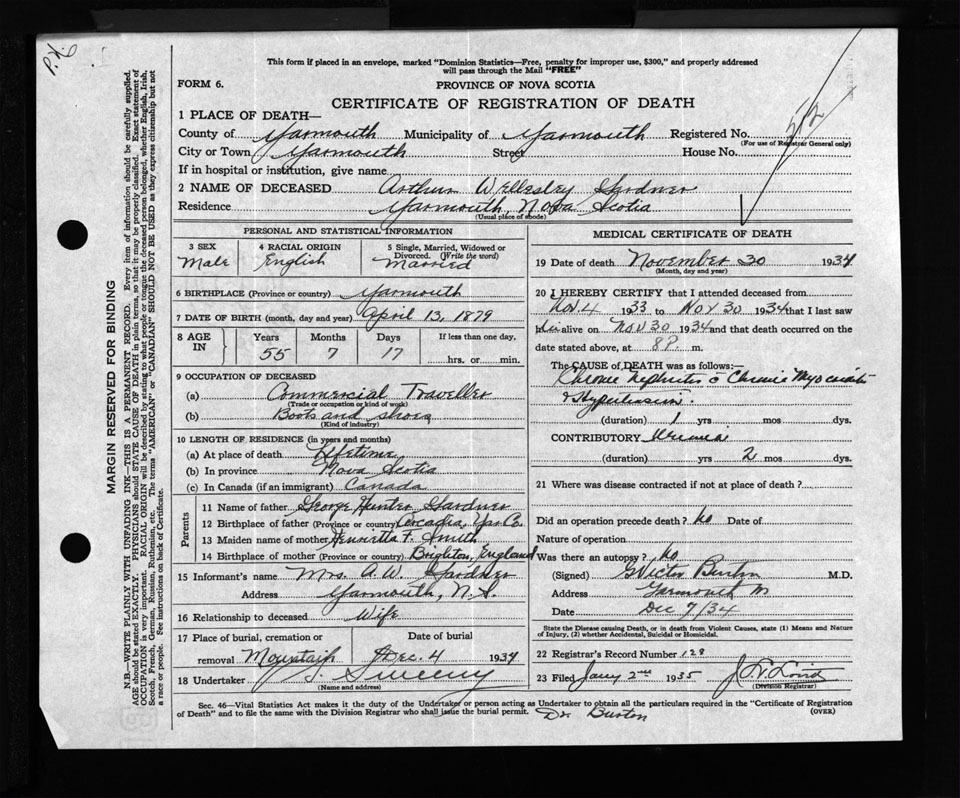 This form if placed in an envelope, marked "Dominion Statistics—Free, penalty for improper use, $300," and properly addressed
will pass through the Mail "FREE"
FORM 6.
PROVINCE OF NOVA SCOTIA
CERTIFICATE OF REGISTRATION OF DEATH
1 PLACE OF DEATH—
County of Yarmouth Municipality of Yarmouth Registered No.
(For use of Registrar General only)
City or Town Yarmouth Street House No.
If in hospital or institution, give name
2 NAME OF DECEASED Arthur Wellesley Gardner
Residence Yarmouth, Nova Scotia
(Usual place of abode)
PERSONAL AND STATISTICAL INFORMATION
3 SEX 4 RACIAL ORIGIN 5 Single, Married, Widowed or Divorced. (Write the word)
Male English Married
6 BIRTHPLACE (Province or country) Yarmouth
7 DATE OF BIRTH (month, day and year) April 13, 1879
8 AGE IN Years Months Days If less than one day,
55 7 17 hrs. or min.
9 OCCUPATION OF DECEASED
(a) Commercial Traveller
(Trade or occupation or kind of work)
(b) Boots and shoes
(Kind of industry)
10 LENGTH OF RESIDENCE (in years and months)
(a) At place of death Lifetime
(b) In province Nova Scotia
(c) In Canada (if an immigrant) Canada
Parents
11 Name of father George Hunter Gardner
12 Birthplace of father (Province or country) Arcadia, Yar. Co.
13 Maiden name of mother Henrietta F. Smith
14 Birthplace of mother (Province or country) Brighton, England
15 Informant's name Mrs. A. W. Gardner
Address Yarmouth, N.S.
16 Relationship to deceased Wife
17 Place of burial, cremation or removal Mountain Date of burial Dec. 4 1934
18 Undertaker Sweeny
(Name and address)
MEDICAL CERTIFICATE OF DEATH
19 Date of death November 30 1934
(Month, day and year)
20 I HEREBY CERTIFY that I attended deceased from
Nov. 4 1933 to Nov 30 1934 that I last saw
him alive on Nov 30 1934 and that death occurred on
date stated above, at 8 P. m.
The CAUSE of DEATH was as follows:—
Chronic Nephritis c Chronic Myocarditis
& Hypertension.
(duration) 1 yrs mos dys.
CONTRIBUTORY Uremia
(duration) yrs 2 mos dys.
21 Where was disease contracted if not at place of death?
Did an operation precede death? No Date of
Nature of operation
Was there an autopsy? No
(Signed) G Victor Burton M.D.
Address Yarmouth NS
Date Dec 7/34
State the Disease causing Death, or in death from Violent Causes, state (1) Means and Nature
of Injury, (2) whether Accidental, Suicidal or Homicidal.
22 Registrar's Record Number 128
23 Filed Jany 2nd 1935
(Division Registrar)
Sec. 46—Vital Statistics Act makes it the duty of the Undertaker or person acting as Undertaker to obtain all the particulars required in the "Certificate of Registration
of Death" and to file the same with the Division Registrar who shall issue the burial permit. (OVER)
Dr Burton
MARGIN RESERVED FOR BINDING
N.B.—WRITE PLAINLY WITH UNFADING INK—THIS IS A PERMANENT RECORD. Every item of information should be carefully supplied.
AGE should be stated EXACTLY. PHYSICIANS should STATE CAUSE OF DEATH in plain terms, so that it may be properly classified. Exact statement of
OCCUPATION is very important. RACIAL ORIGIN will be described by stating to what people or tongue the deceased person belonged, whether English, Irish,
Scotch, French, German, Russian, Ruthenian, etc. The terms "AMERICAN" or "CANADIAN" SHOULD NOT BE USED as they express citizenship but not
a race or people. See instructions on back of Certificate.